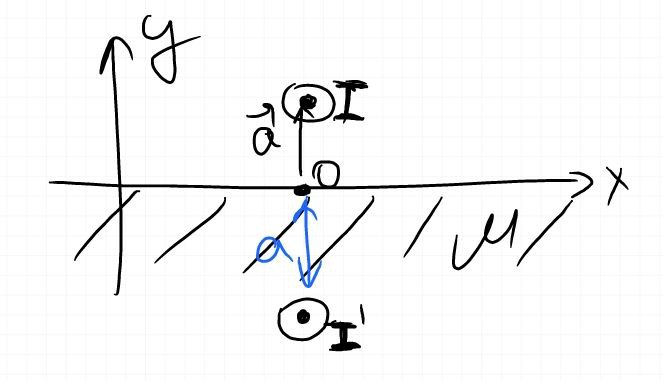 y
I
a⃗
O
x
a
μ
I'